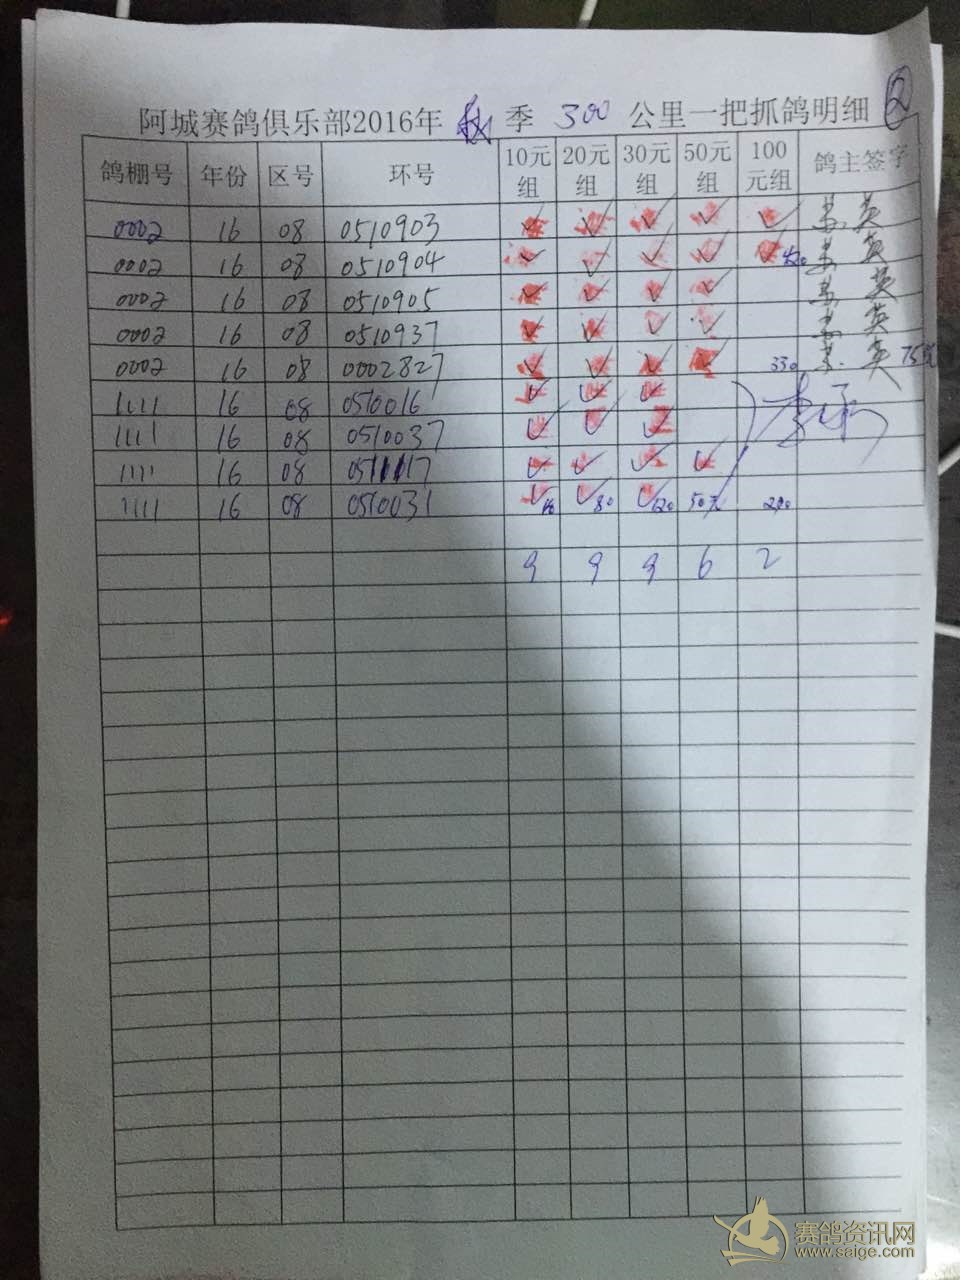 ②
阿城赛鸽俱乐部2016年 秋 季 300 公里一把抓鸽明细
鸽棚号 年份 区号 环号 10元组 20元组 30元组 50元组 100元组 鸽主签字
0002 16 08 0510903 ✓ ✓ ✓ ✓ ✓ 英
0002 16 08 0510904 ✓ ✓ ✓ ✓ ✓ 英
0002 16 08 0510905 ✓ ✓ ✓ ✓ 英
0002 16 08 0510937 ✓ ✓ ✓ ✓ 英
0002 16 08 0002827 ✓ ✓ ✓ ✓ 330 英
1111 16 08 0510016 ✓ ✓ ✓
1111 16 08 0510037 ✓ ✓ ✓
1111 16 08 0511117 ✓ ✓ ✓ ✓
1111 16 08 0510031 ✓ ✓ 80 ✓ 120 50元
9 9 9 6 2
赛鸽资讯网
www.saige.com